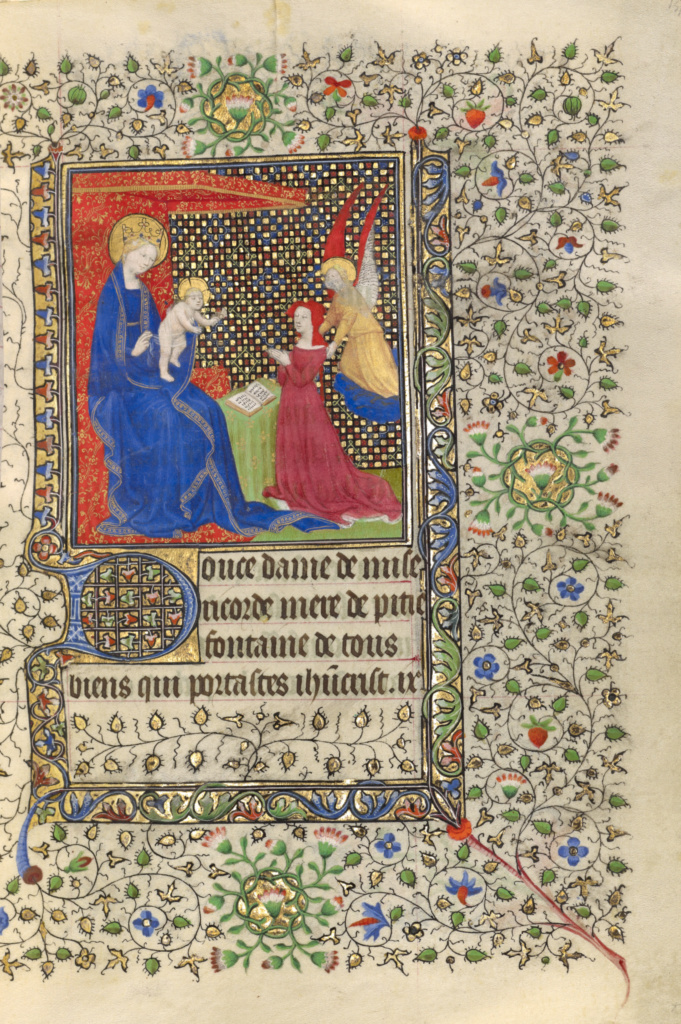 Douce dame de mise
ricorde mere de pitie
fontaine de tous
biens qui portastes ihũcrist. ix